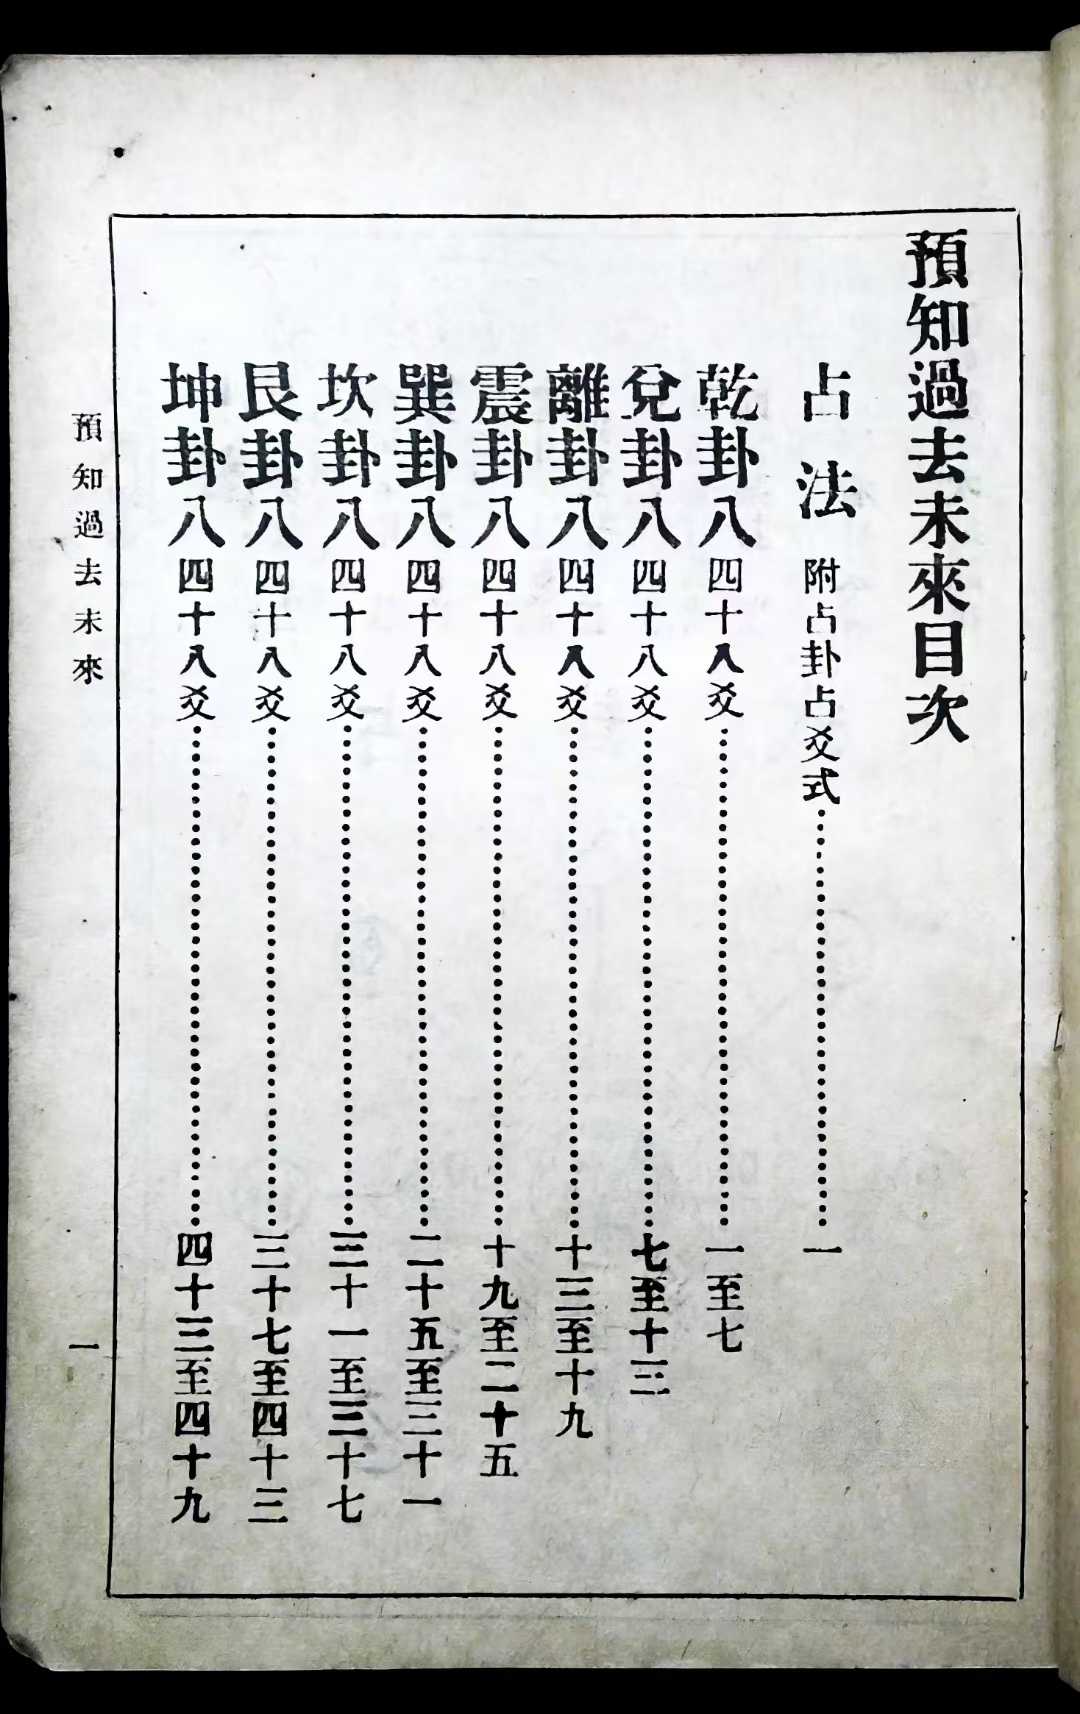 預知過去未來目次
占法 附占卦占爻式……一
乾卦八 四十八爻……一至七
兌卦八 四十八爻……七至十三
離卦八 四十八爻……十三至十九
震卦八 四十八爻……十九至二十五
巽卦八 四十八爻……二十五至三十一
坎卦八 四十八爻……三十一至三十七
艮卦八 四十八爻……三十七至四十三
坤卦八 四十八爻……四十三至四十九
預知過去未來
一